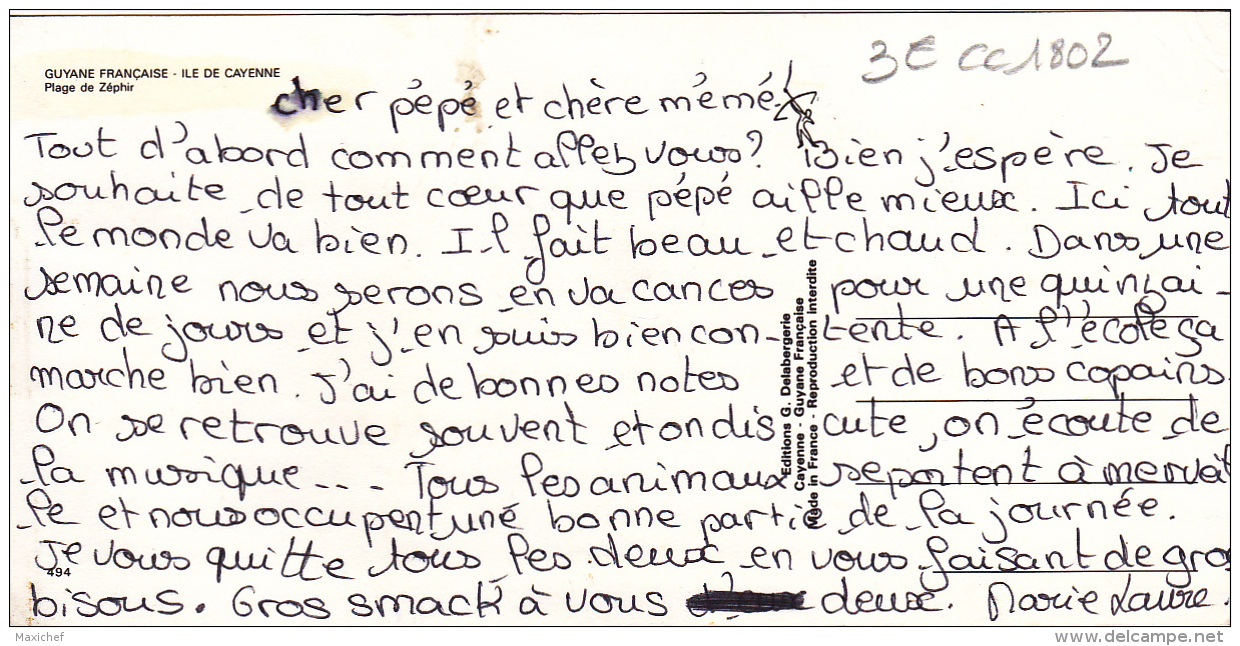 3€ CC1802
GUYANE FRANÇAISE - ILE DE CAYENNE
Plage de Zéphir
cher pépé et chère mémé
Tout d'abord comment allez vous? Bien j'espère. Je
souhaite de tout cœur que pépé aille mieux. Ici tout
le monde va bien. Il fait beau et chaud. Dans une
semaine nous serons en vacances pour une quinzai-
ne de jours et j'en suis bien con-tente. A l'école ça
marche bien. J'ai de bonnes notes et de bons copains.
On se retrouve souvent et on discute, on écoute de
la musique... Tous les animaux se portent à merveil
le et nous occupent une bonne partie de la journée.
Je vous quitte tous les deux en vous faisant de gros
bisous. Gros smack à vous deux. Marie Laure.
494
Editions G. Delabergerie
Cayenne - Guyane Française
Made in France - Reproduction Interdite
Maxichef
www.delcampe.net